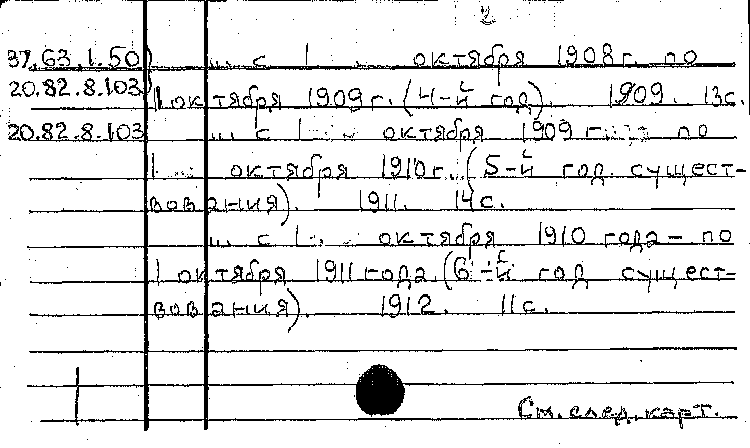 2
37.63.1.50) ... с 1 октября 1908 г. по
20.82.8.103) 1 октября 1909 г. (4-й год). 1909. 13 с.
20.82.8.103 ... с 1 октября 1909 г. по
1 октября 1910 г. (5-й год сущест-
вования). 1911. 14 с.
... с 1 октября 1910 года - по
1 октября 1911 года. (6-й год сущест-
вования). 1912. 11 с.
См. след. карт.